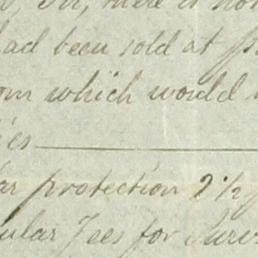 Sir, there is no
had been sold at
om which would
es
ar protection 2½
ular Fees for Surv